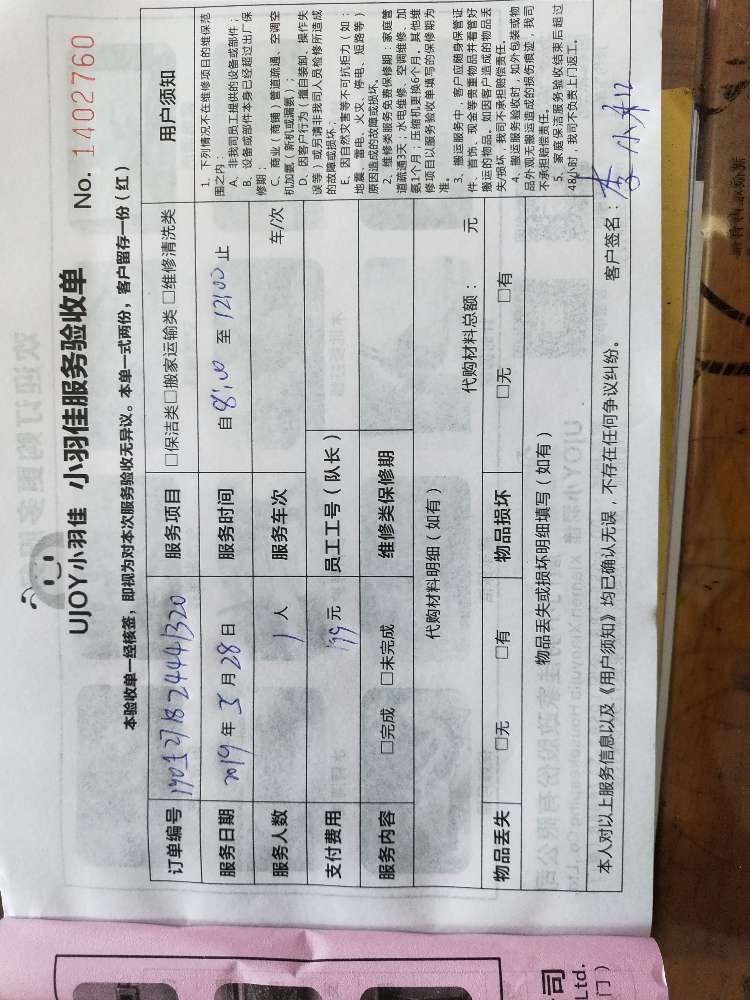 UJOY小羽佳 小羽佳服务验收单 No. 1402760
本验收单一经核签，即视为对本次服务验收无异议。本单一式两份，客户留存一份（红）
订单编号
服务项目 □保洁类□搬家运输类 □维修清洗类
服务日期 2019年5月28日
服务时间 自 8:00 至 12:00 止
服务人数 1 人
服务车次 车/次
支付费用 199元
员工工号（队长）
服务内容 □完成 □未完成
维修类保修期
代购材料明细（如有）
代购材料总额： 元
物品丢失 □无 □有
物品损坏 □无 □有
物品丢失或损坏明细填写（如有）
用户须知
1、下列情况不在维修项目的维保范
围之内：
A、非我司员工提供的设备或部件；
B、设备或部件本身已经超过出厂保
修期；
C、商业（商铺）管道疏通、空调空
机加氨（新机或漏氨）；
D、因客户行为（擅自装卸、操作失
误等）或另请非我司人员检修所造成
的故障或损坏；
E、因自然灾害等不可抗拒力（如：
地震、雷电、火灾、停电、短路等）
原因造成的故障或损坏。
2、维修类服务免费保修期：家庭管
道疏通3天；水电维修、空调维修、加
氨1个月；压缩机更换6个月，其他维
修项目以服务验收单填写的保修期为
准。
3、搬运服务中，客户应随身保管证
件、首饰、现金等贵重物品并看管好
搬运的物品。如因客户造成的物品丢
失/损坏，我司不承担赔偿责任。
4、搬运服务验收时，如外包装或物
品外观无搬运造成的损伤痕迹，我司
不承担赔偿责任。
5、家庭保洁服务验收结束后超过
48小时，我司不负责上门返工。
本人对以上服务信息以及《用户须知》均已确认无误，不存在任何争议纠纷。 客户签名：李小
司
Ltd.
门）